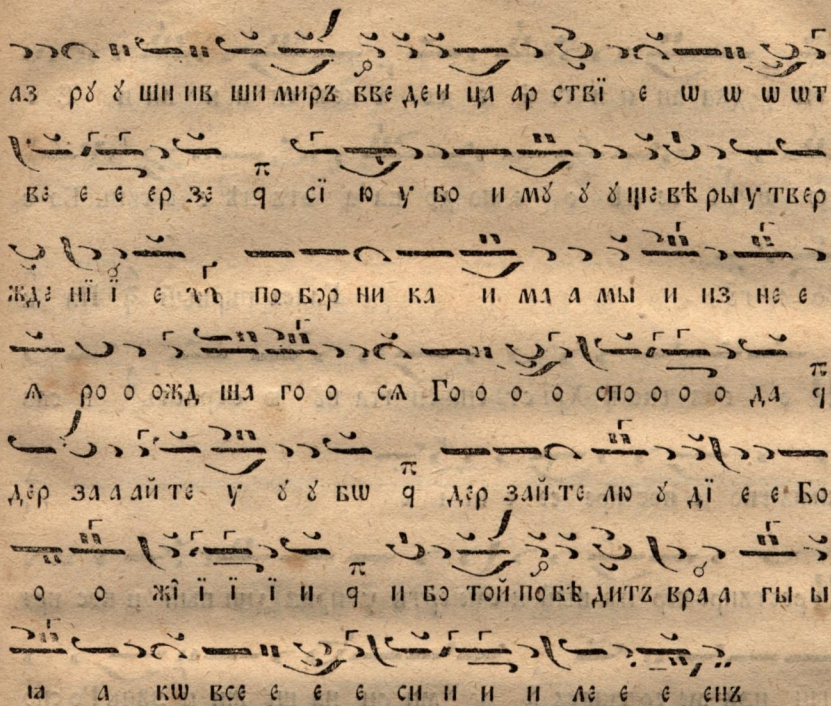 аз рꙋ ꙋ ши ив ши миръ вве де и ца ар ствї е ѡ ѡ ѡ ѡт
ве е е ер зе q сї ю у бо и мꙋ ꙋ ꙋ ще вѣ ры у твер
жде нї ї е по бор ни ка и ма а мы и из не е
ѧ ро о ожд ша го о сѧ Го о о о спо о о о да q
дер за а ай те у ꙋ ꙋ бѡ q дер зай те лю ꙋ дї е е Бо
о о жї ї ї ї и q и бо той по бѣ дитъ вра а гы ы
ꙗ а кѡ все е е е си и и и ле е е енъ